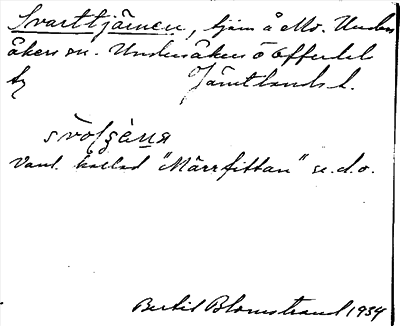 Svarttjärnen, tjärn å allm. Unders-
åkers sn. Undersåkers o Offerdal
tg Jämtlands l.
svòʃʒàɴᴀ
Vanl. kallad "Märrfittan" se. d. o.
Bertil Blomstrand 1934